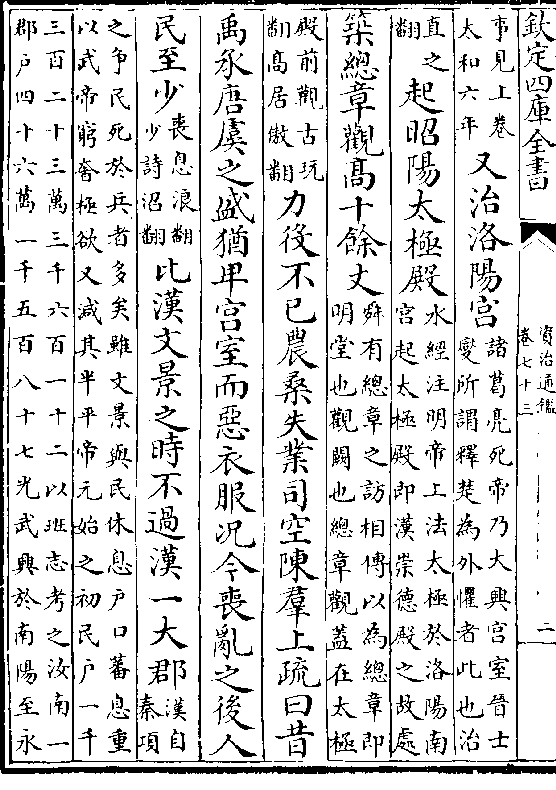 欽定四庫全書
資治通鑑
卷七十三
二
事見上卷
太和六年
又治洛陽宮
諸葛亮死帝乃大興宮室晉士
燮所謂釋楚為外懼者此也治
直之
翻
起昭陽太極殿
水經注明帝上法太極於洛陽南
宮起太極殿即漢崇德殿之故處
築總章觀高十餘丈
舜有總章之訪相傳以為總章即
明堂也觀闕也總章觀蓋在太極
殿前觀古玩
翻高居傲翻
力役不已農桑失業司空陳羣上疏曰昔
禹承唐虞之盛猶卑宮室而惡衣服况今喪亂之後人
民至少
喪息浪翻
少詩沼翻
比漢文景之時不過漢一大郡
漢自
秦項
之争民死於兵者多矣雖文景與民休息户口蕃息重
以武帝窮奢極欲又減其半平帝元始之初民户一千
三百二十三萬三千六百一十二以班志考之汝南一
郡户四十六萬一千五百八十七光武興於南陽至永